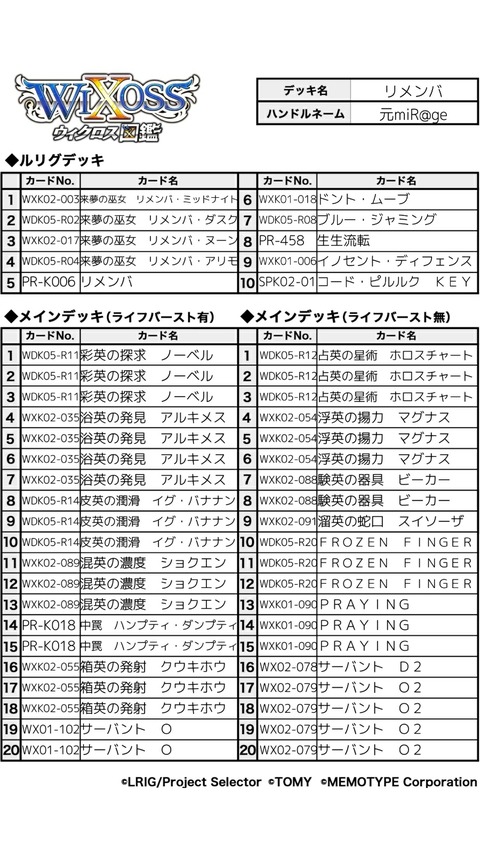 WIXOSS
ウィクロス図鑑
デッキ名 リメンバ
ハンドルネーム 元miR@ge
◆ルリグデッキ
カードNo. カード名 カードNo. カード名
1 WXK02-003 来夢の巫女　リメンバ・ミッドナイト 6 WXK01-018 ドント・ムーブ
2 WDK05-R02 来夢の巫女　リメンバ・ダスク 7 WDK05-R08 ブルー・ジャミング
3 WXK02-017 来夢の巫女　リメンバ・ヌーン 8 PR-458 生生流転
4 WDK05-R04 来夢の巫女　リメンバ・アリモ 9 WXK01-006 イノセント・ディフェンス
5 PR-K006 リメンバ 10 SPK02-01 コード・ピルルク　ＫＥＹ
◆メインデッキ（ライフバースト有） ◆メインデッキ（ライフバースト無）
カードNo. カード名 カードNo. カード名
1 WDK05-R11 彩英の探求　ノーベル 1 WDK05-R12 占英の星術　ホロスチャート
2 WDK05-R11 彩英の探求　ノーベル 2 WDK05-R12 占英の星術　ホロスチャート
3 WDK05-R11 彩英の探求　ノーベル 3 WDK05-R12 占英の星術　ホロスチャート
4 WXK02-035 浴英の発見　アルキメス 4 WXK02-054 浮英の揚力　マグナス
5 WXK02-035 浴英の発見　アルキメス 5 WXK02-054 浮英の揚力　マグナス
6 WXK02-035 浴英の発見　アルキメス 6 WXK02-054 浮英の揚力　マグナス
7 WXK02-035 浴英の発見　アルキメス 7 WXK02-088 験英の器具　ビーカー
8 WDK05-R14 皮英の潤滑　イグ・バナナン 8 WXK02-088 験英の器具　ビーカー
9 WDK05-R14 皮英の潤滑　イグ・バナナン 9 WXK02-091 溜英の蛇口　スイソーザ
10 WDK05-R14 皮英の潤滑　イグ・バナナン 10 WDK05-R20 ＦＲＯＺＥＮ　ＦＩＮＧＥＲ
11 WXK02-089 混英の濃度　ショクエン 11 WDK05-R20 ＦＲＯＺＥＮ　ＦＩＮＧＥＲ
12 WXK02-089 混英の濃度　ショクエン 12 WDK05-R20 ＦＲＯＺＥＮ　ＦＩＮＧＥＲ
13 WXK02-089 混英の濃度　ショクエン 13 WXK01-090 ＰＲＡＹＩＮＧ
14 PR-K018 中罠　ハンプティ・ダンプティ 14 WXK01-090 ＰＲＡＹＩＮＧ
15 PR-K018 中罠　ハンプティ・ダンプティ 15 WXK01-090 ＰＲＡＹＩＮＧ
16 WXK02-055 箱英の発射　クウキホウ 16 WX02-078 サーバント　Ｄ２
17 WXK02-055 箱英の発射　クウキホウ 17 WX02-079 サーバント　Ｏ２
18 WXK02-055 箱英の発射　クウキホウ 18 WX02-079 サーバント　Ｏ２
19 WX01-102 サーバント　Ｏ 19 WX02-079 サーバント　Ｏ２
20 WX01-102 サーバント　Ｏ 20 WX02-079 サーバント　Ｏ２
©LRIG/Project Selector ©TOMY ©MEMOTYPE Corporation